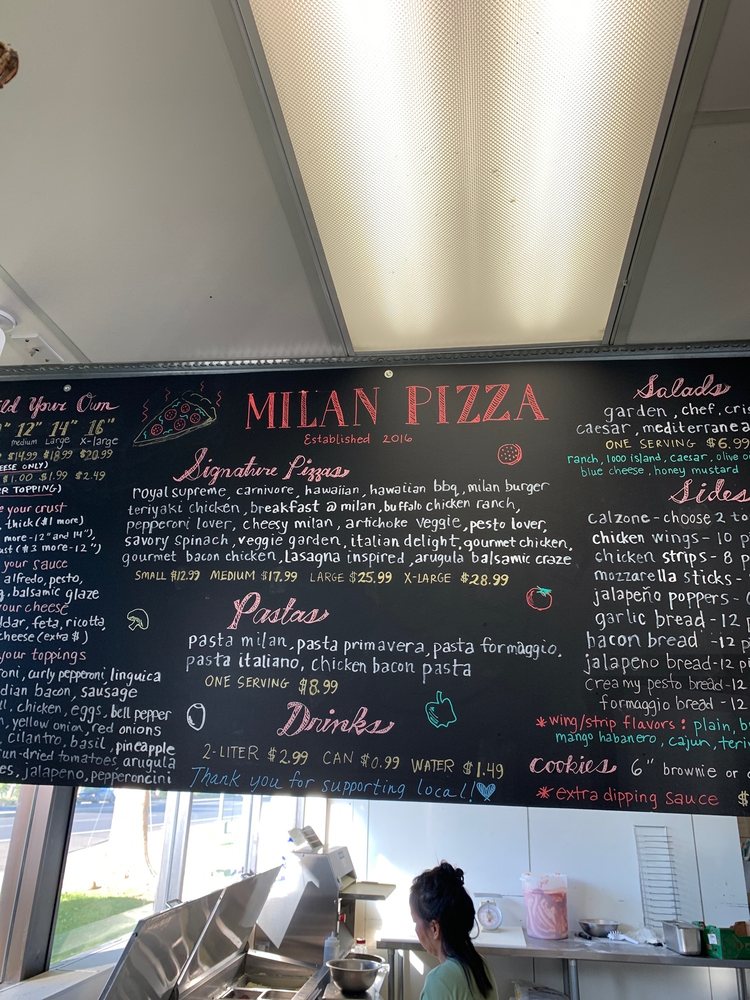 ld Your Own
12" 14" 16"
medium Large X-large
$14.99 $18.99 $20.99
EESE ONLY)
$1.00 $1.99 $2.49
R TOPPING)
e your crust
, thick ($1 more)
more - 12" and 14"),
ust ($3 more - 12")
your sauce
alfredo, pesto,
, balsamic glaze
your cheese
ddar, feta, ricotta,
cheese (extra $)
your toppings
roni, curly pepperoni linguica
dian bacon, sausage
, chicken, eggs, bell pepper
, yellow onion, red onions
, cilantro, basil, pineapple
un-dried tomatoes, arugula
es, jalapeno, pepperoncini
MILAN PIZZA
Established 2016
Signature Pizzas
royal supreme, carnivore, hawaiian, hawaiian bbq, milan burger
teriyaki chicken, breakfast @ milan, buffalo chicken ranch,
pepperoni lover, cheesy milan, artichoke veggie, pesto lover,
savory spinach, veggie garden, italian delight, gourmet chicken,
gourmet bacon chicken, lasagna inspired, arugula balsamic craze
SMALL $12.99 MEDIUM $17.99 LARGE $25.99 X-LARGE $28.99
Pastas
pasta milan, pasta primavera, pasta formaggio,
pasta italiano, chicken bacon pasta
ONE SERVING $8.99
Drinks
2-LITER $2.99 CAN $0.99 WATER $1.49
Thank you for supporting local!
Salads
garden, chef, cri
caesar, mediterranea
ONE SERVING $6.99
ranch, 1000 island, caesar, olive o
blue cheese, honey mustard
Sides
calzone - choose 2 to
chicken wings - 10 p
chicken strips - 8 p
mozzarella sticks -
jalapeño poppers -
garlic bread - 12 p
bacon bread - 12 p
jalapeno bread - 12 pi
creamy pesto bread - 12
formaggio bread - 12
* wing/strip flavors: plain, b
mango habanero, cajun, teri
cookies 6" brownie or
* extra dipping sauce $